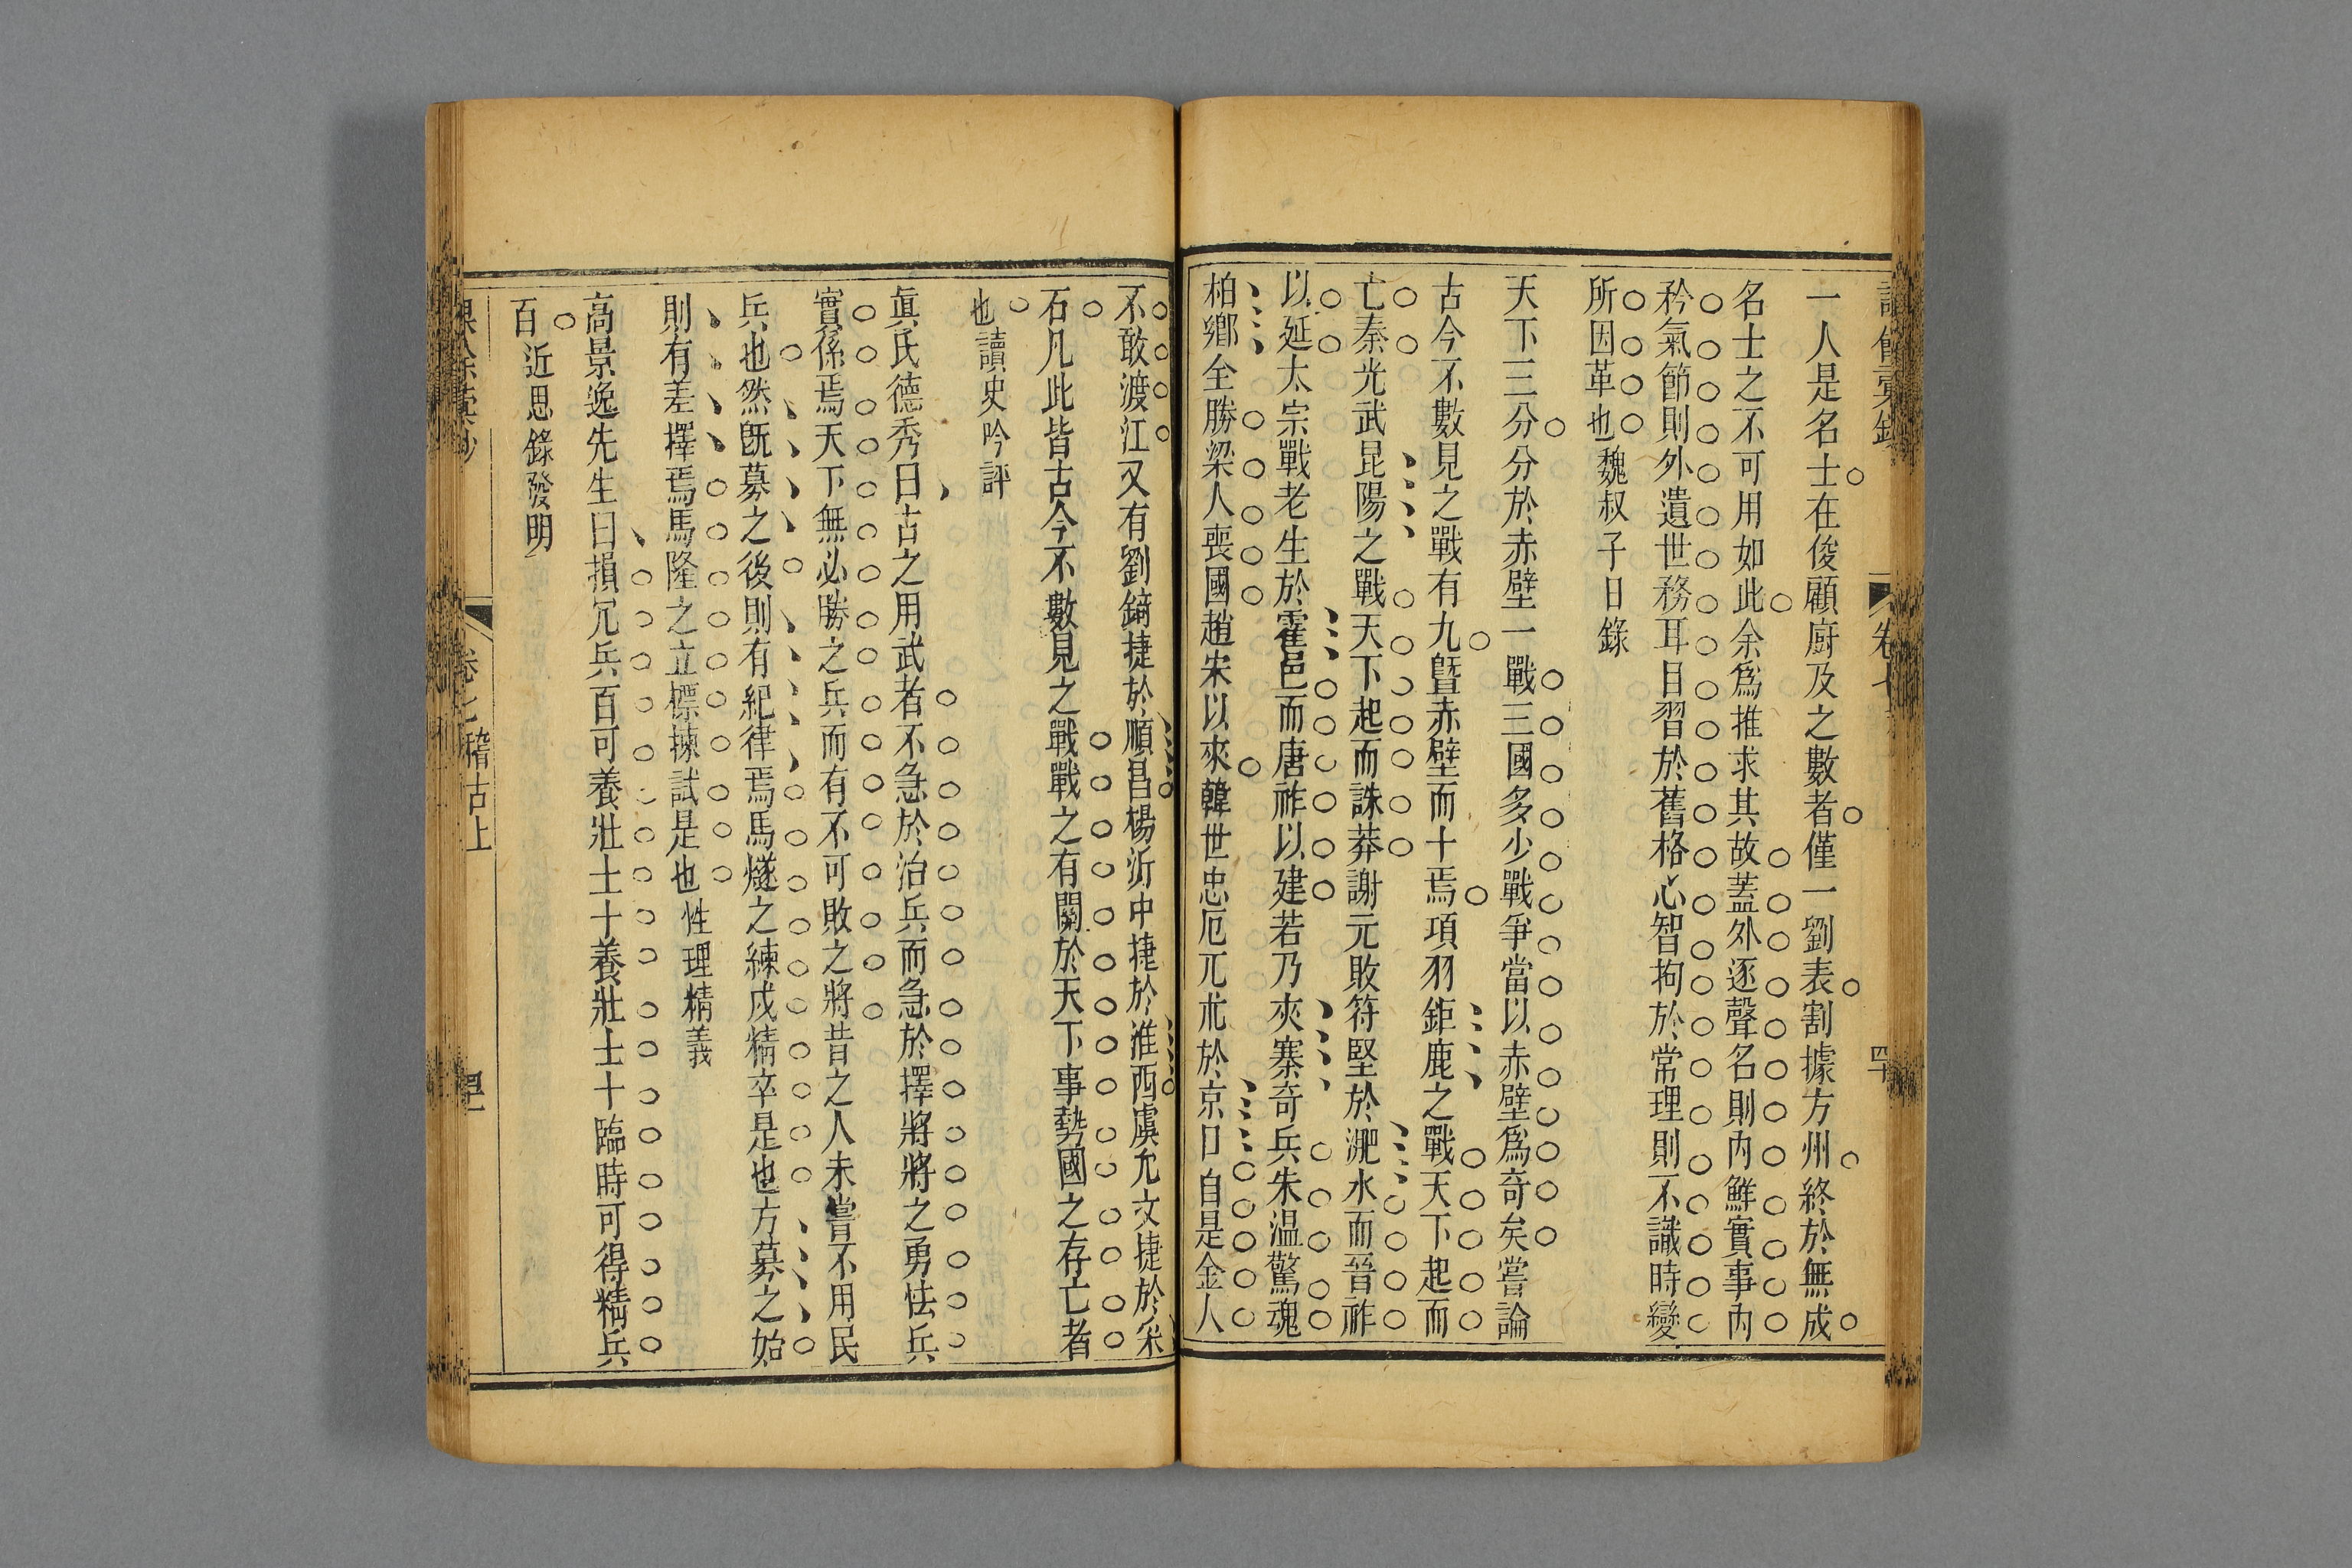 一人是名士在俊顧廚及之數者僅一劉表割據方州終於無成
名士之不可用如此余爲推求其故蓋外逐聲名則內鮮實事內
矜氣節則外遺世務耳目習於舊格心智拘於常理則不識時變
所因革也魏叔子日錄
天下三分分於赤壁一戰三國多少戰爭當以赤壁爲奇矣嘗論
古今不數見之戰有九曁赤壁而十焉項羽鉅鹿之戰天下起而
亡秦光武昆陽之戰天下起而誅莽謝元敗符堅於淝水而晉祚
以延太宗戰老生於霍邑而唐祚以建若乃夾寨奇兵朱温驚魂
柏鄉全勝梁人喪國趙宋以來韓世忠厄兀朮於京口自是金人
卷七
四十
不敢渡江又有劉錡捷於順昌楊沂中捷於淮西虞允文捷於采
石凡此皆古今不數見之戰戰之有關於天下事勢國之存亡者
也讀史吟評
眞氏德秀曰古之用武者不急於治兵而急於擇將將之勇怯兵
實係焉天下無必勝之兵而有不可敗之將昔之人未嘗不用民
兵也然旣募之後則有紀律焉馬燧之練成精卒是也方募之始
則有差擇焉馬隆之立標揀試是也性理精義
高景逸先生曰損冗兵百可養壯士十養壯士十臨時可得精兵
百近思錄發明
卷七稽古上